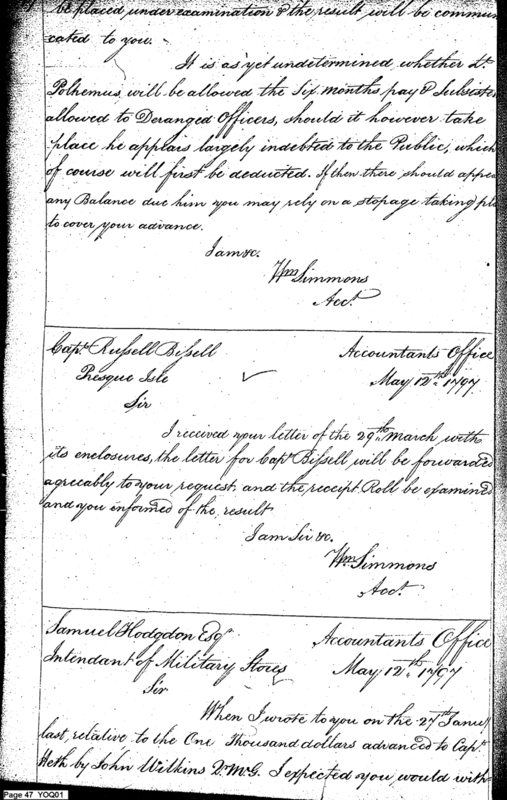 be placed under examination & the result will be commun
cated to you.
It is as yet undetermined, whether Lt.
Polhemus, will be allowed the Six months pay & Subsisten
allowed to Deranged Officers, should it however take
place he appears largely indebted to the Public, which
of course will first be deducted. If then there should appe
any Balance due him you may rely on a stopage taking pla
to cover your advance.
I am &c.
Wm Simmons
Acct.
Capt. Russell Bissell
Accountants Office
Presque Isle
May 12th. 1797
Sir
I received your letter of the 29th March with
its enclosures, the letter for Capt. Bissell will be forwarded
agreeably to your request, and the receipt Roll be examined
and you informed of the result
I am Sir &c.
Wm Simmons
Acct.
Samuel Hodgdon Esqr.
Accountants Office
Intendant of Military Stores
May 12th. 1797
Sir
When I wrote to you on the 27th Januy
last, relative to the One Thousand dollars advanced to Capt.
Heth by John Wilkins Q.M.G. I expected you would with
Page 47 YOQ01